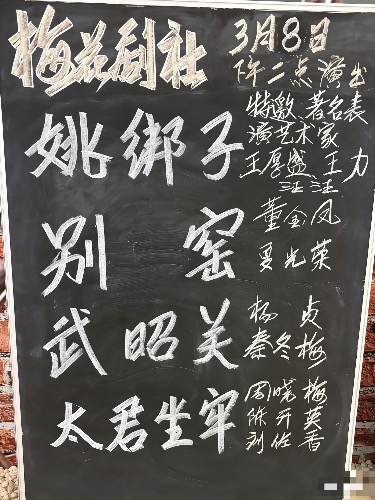 梅花剧社
3月8日
下午二点演出
姚绑子
特邀 著名表
演艺术家
王厚盛 王力
汪汪
别窑
董金凤
夏光荣
武昭关
杨贞
秦冬梅
太君坐牢
周晓梅
陈开英
刘作香